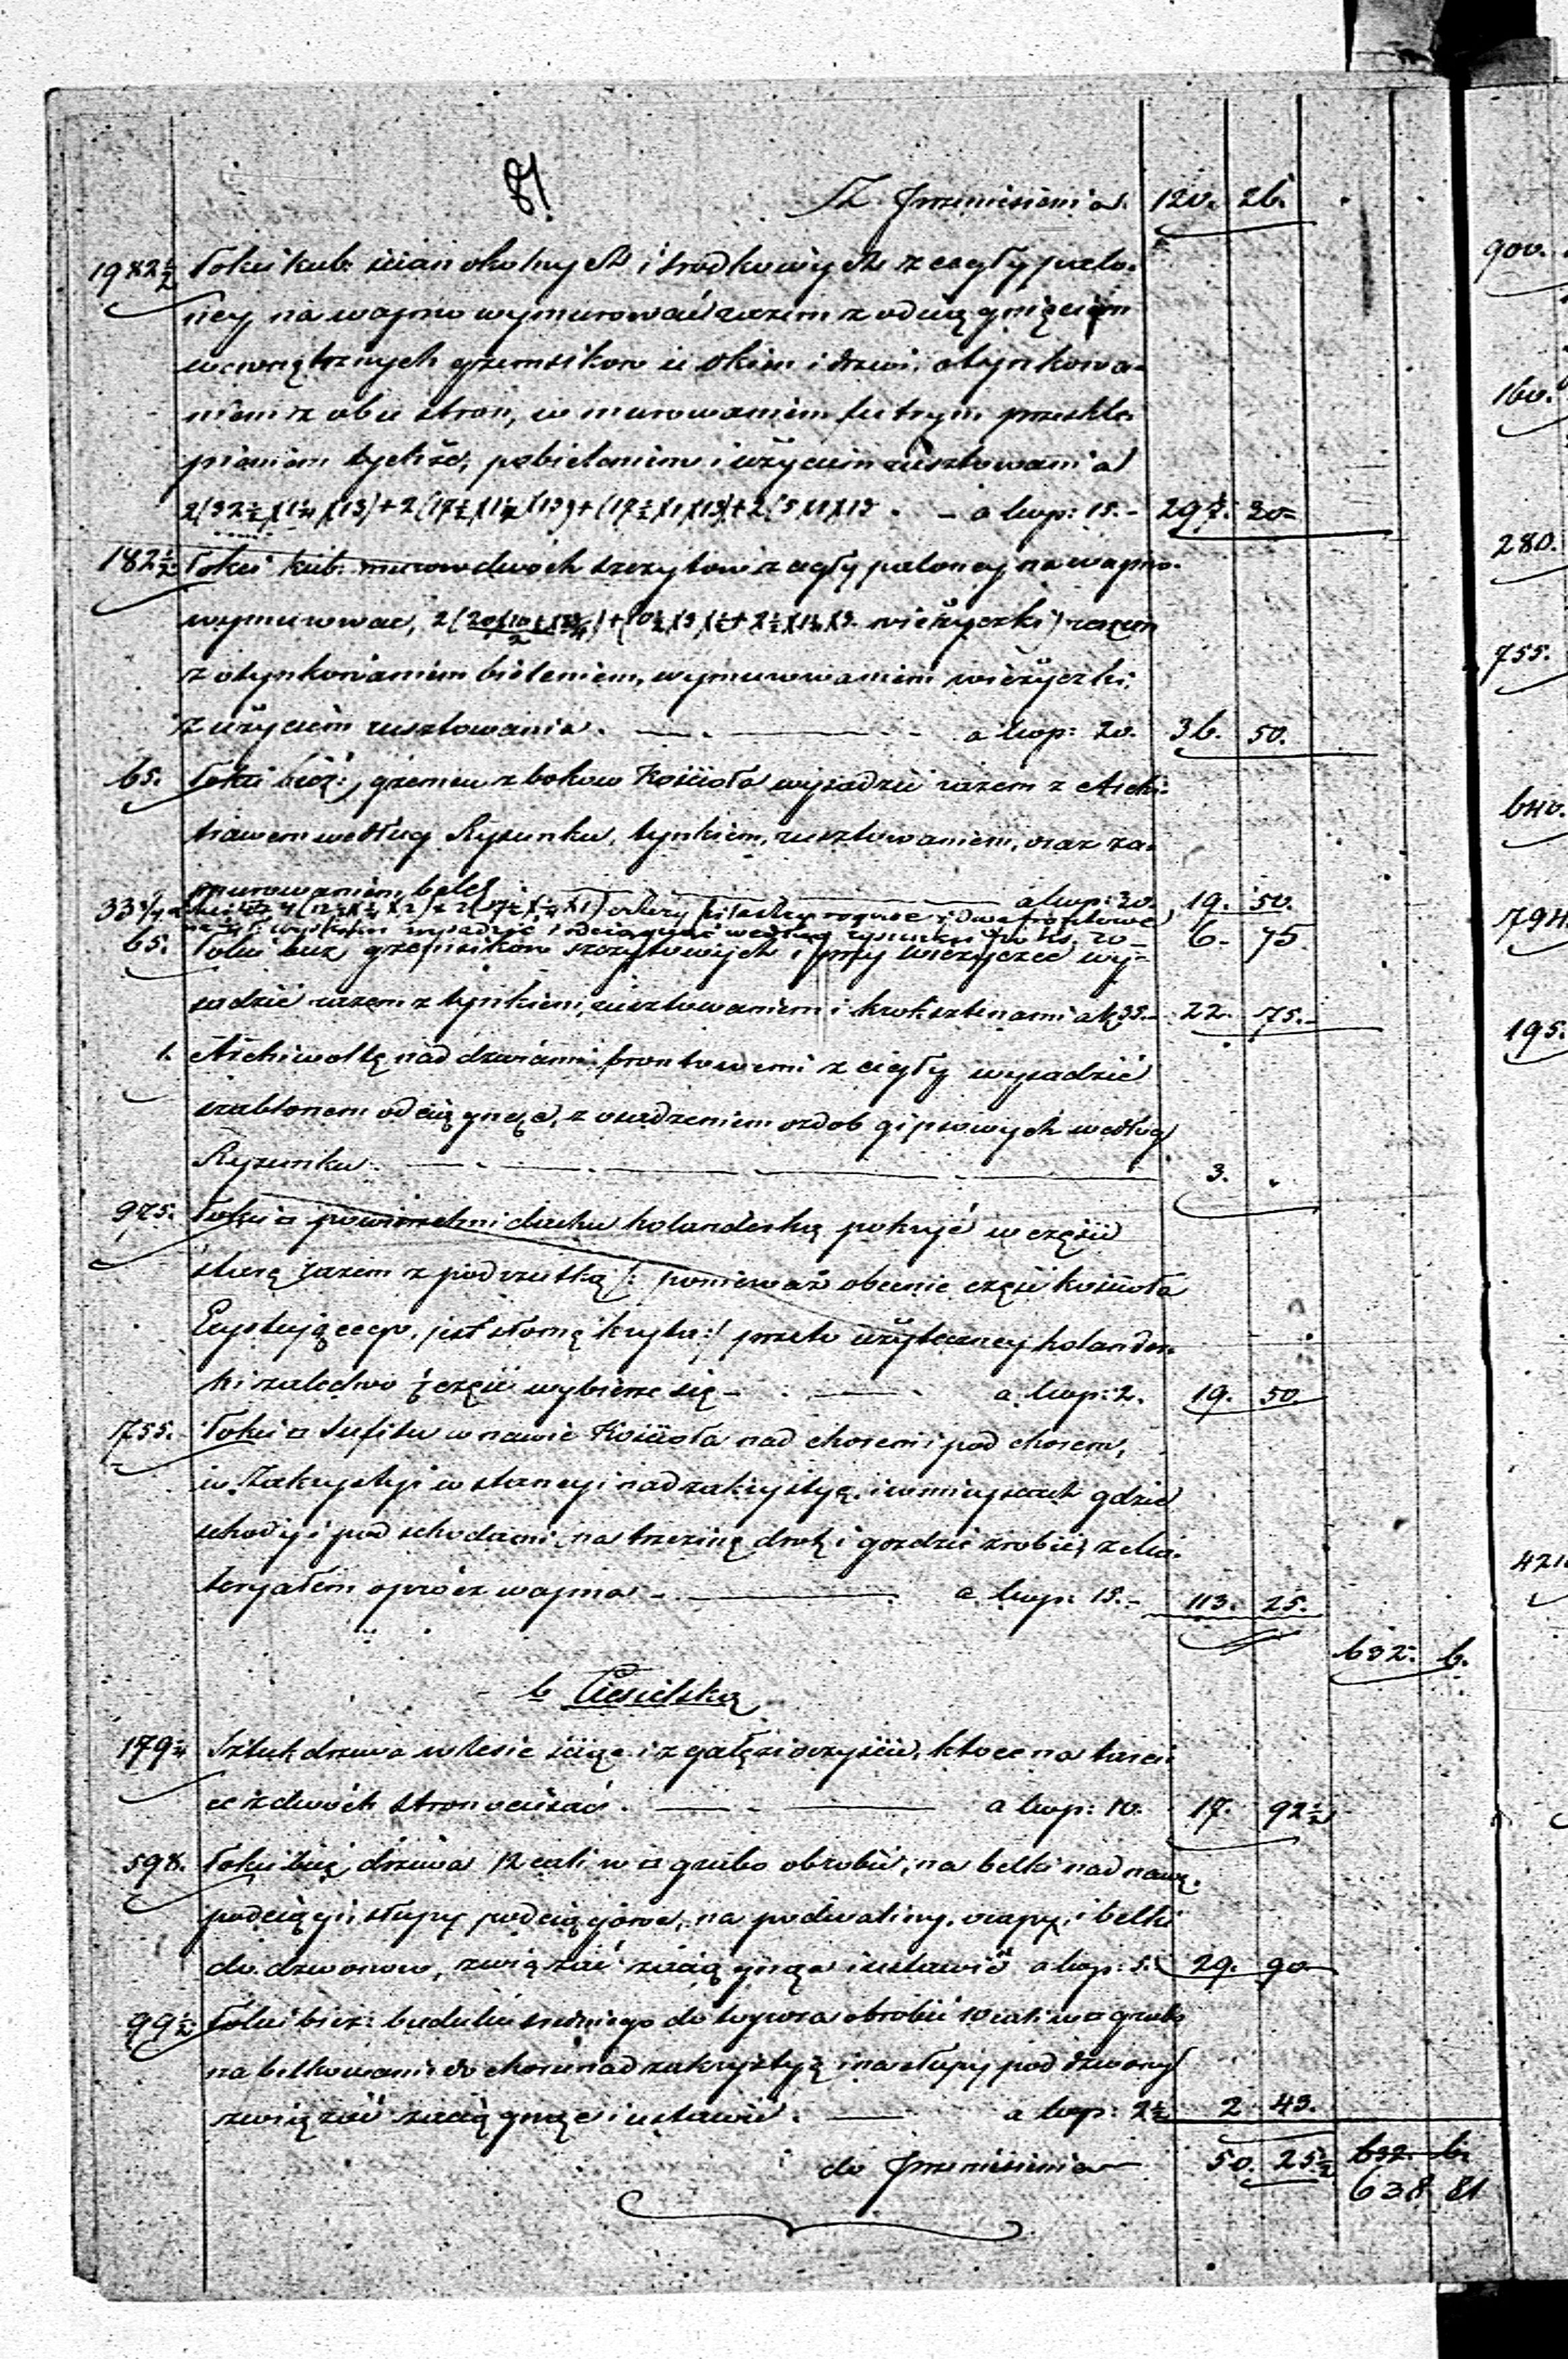 81
Z Przeniesienia. 120. 26.
1982½ Łokci kub: ścian okolnych i środkowych z cegły palo-
ney na wapno wymurować razem z odciągnięciem
wewnętrznych gzemsikow u okien i drzwi, otynkowa-
niem z obu stron, w murowaniem futryn przeskle-
pieniem tychże, pobieleniem i użyciem rusztowania
2(32½ × 1¼ × 13) + 2(17½ × 1¼ × 13) + (17½ × 1 × 13) + 2(5 × 1 × 13 - a kop: 15.- 297. 30-
182½ Łokci kub: murow dwoch szczytow z cegły paloney na wapno
wymurować, wieżyczki) razem
z otynkowaniem bieleniem, wymurowaniem wieżyczki,
z użyciem rusztowania. a kop: 20. 36. 50.
65. Łokci bież:, gzemsu z bokow Kościoła wysadzić razem z Archi-
trawem według Rysunku, tynkiem, rusztowaniem, oraz za-
murowaniem belek a kop: 30. 19. 50.
33¾ cztery pilastry rogowe i dwa frontowe
wysadzić i odciągnąć według rysunku po ks. 20 - 6- 75.
65. Łokci bież gzemsikow szczytowych i przy wieżyczce wy-
sadzić razem z tynkiem, rusztowaniem i kroksztenami a k. 35.- 22. 75.-
1. Archiwoltę nad drzwiami frontowemi z cegły wysadzić
szablonem odciągnąć, z osadzeniem ozdob gipsowych według
Rysunku. 3. "
975. Łokci □ powierzchni dachu holanderką pokryć w części
starą razem z podrzutką /: ponieważ obecnie część kościoła
Exystującego, jest słomą kryta :/ przeto użyteczney holander-
ki zaledwo części wybierze się - a kop: 2. 19. 50.
755. Łokci □ Sufitu w nawie Kościoła nad chorem i pod chorem,
w Zakrystyi w stancyi nad zakrystyą i w mieyscach gdzie
schody i pod schodami, na trzcinę drot i gozdzie zrobić, z Ma-
teryałem oprócz wapna - a kop: 15.- 113. 25.
632. 6.
b Ciesielska
179¼ Sztuk drzewa w lesie ściąć i z gałęzi oczyścić, kloce na tarci-
ce z dwóch stron ociosać. a kop: 10. 17. 92½
598. Łokci bież drzewa 12 cali w □ grubo obrobić, na belki nad nawą,
podciągi, słupy podciągowe, na podwaliny, oczapy, i belki
do dzwonow, związać zaciągnąć i ustawić a kop: 5. 29. 90
99½ Łokci bież: budulcu średniego do tegoż obrobić 10 cali w □ grubo
na belkowanie do choru nad zakrystyą i na słupy pod dzwony
związać zaciągnąć i ustawić. a kop: 2½ 2 43.
do Przeniesienia 50. 25½ 632. 6.
638 81